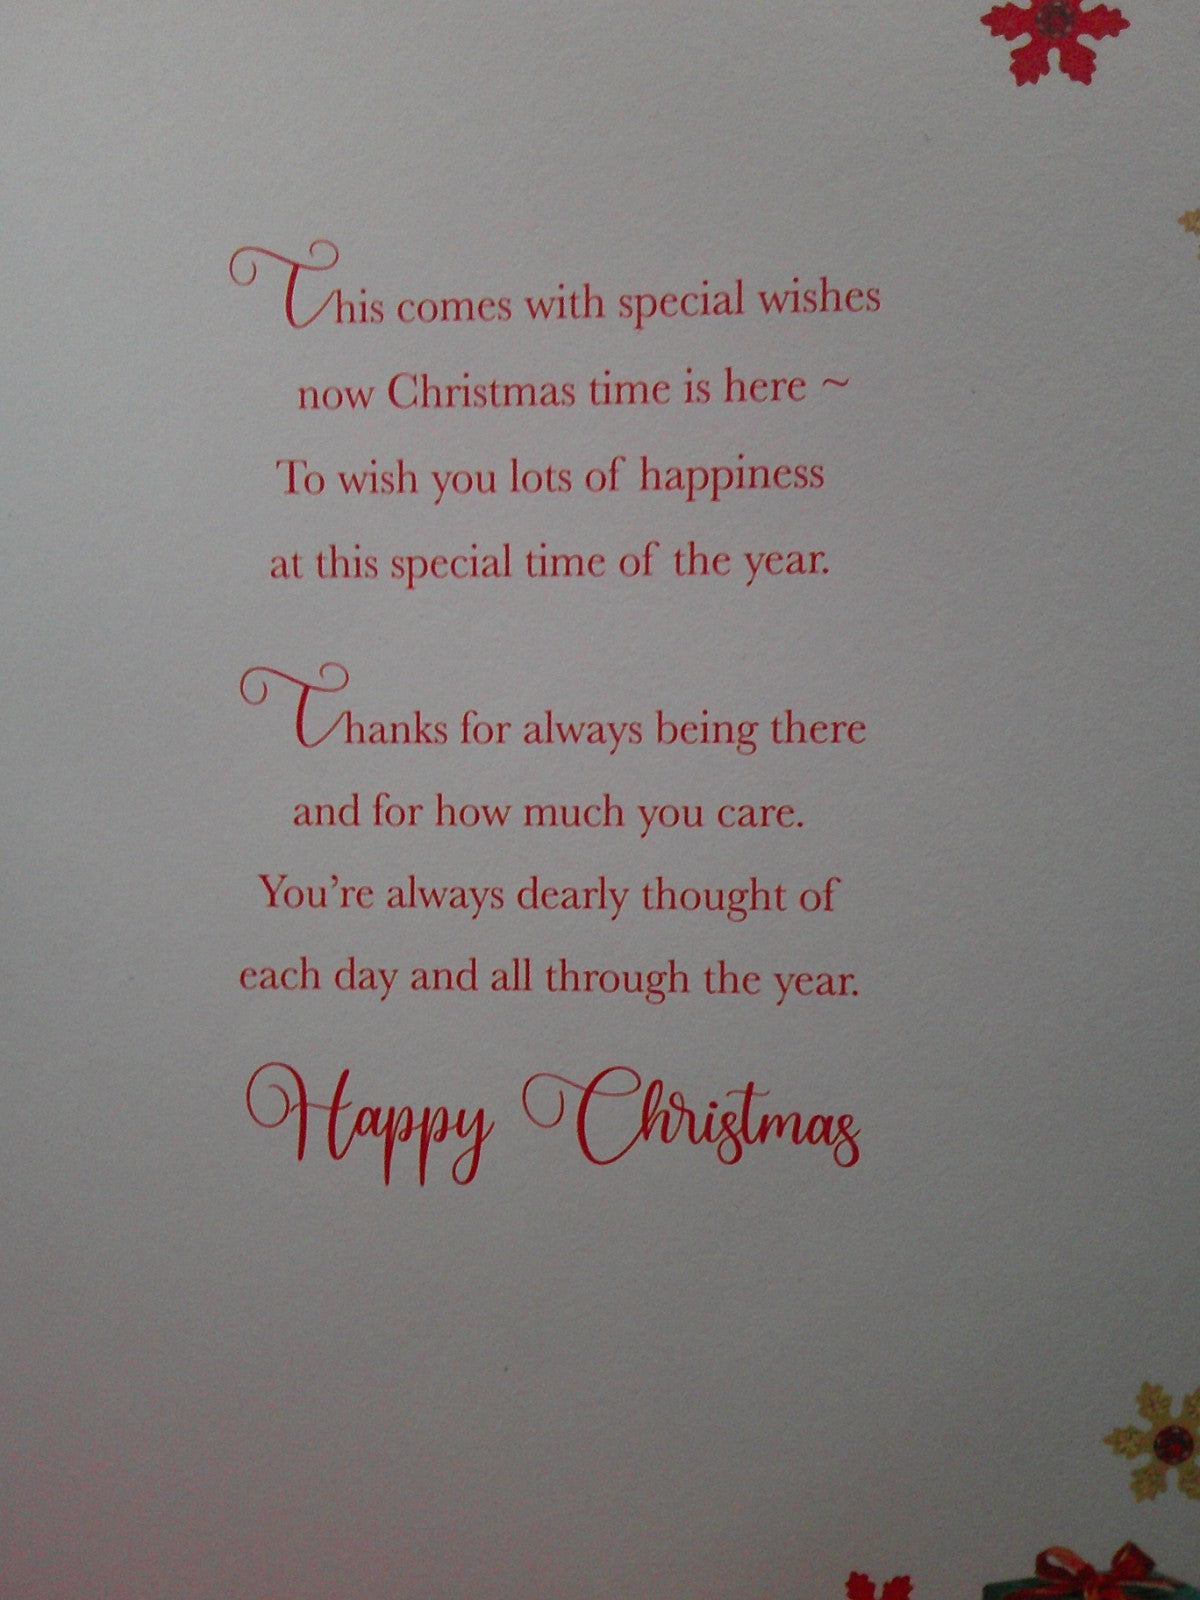 This comes with special wishes
now Christmas time is here ~
To wish you lots of happiness
at this special time of the year.
Thanks for always being there
and for how much you care.
You're always dearly thought of
each day and all through the year.
Happy Christmas